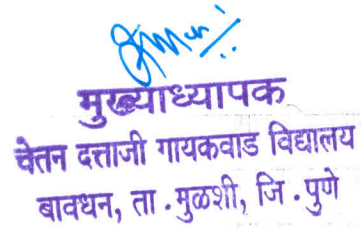 मुख्याध्यापक
चेतन दत्ताजी गायकवाड विद्यालय
बावधन, ता . मुळशी, जि . पुणे